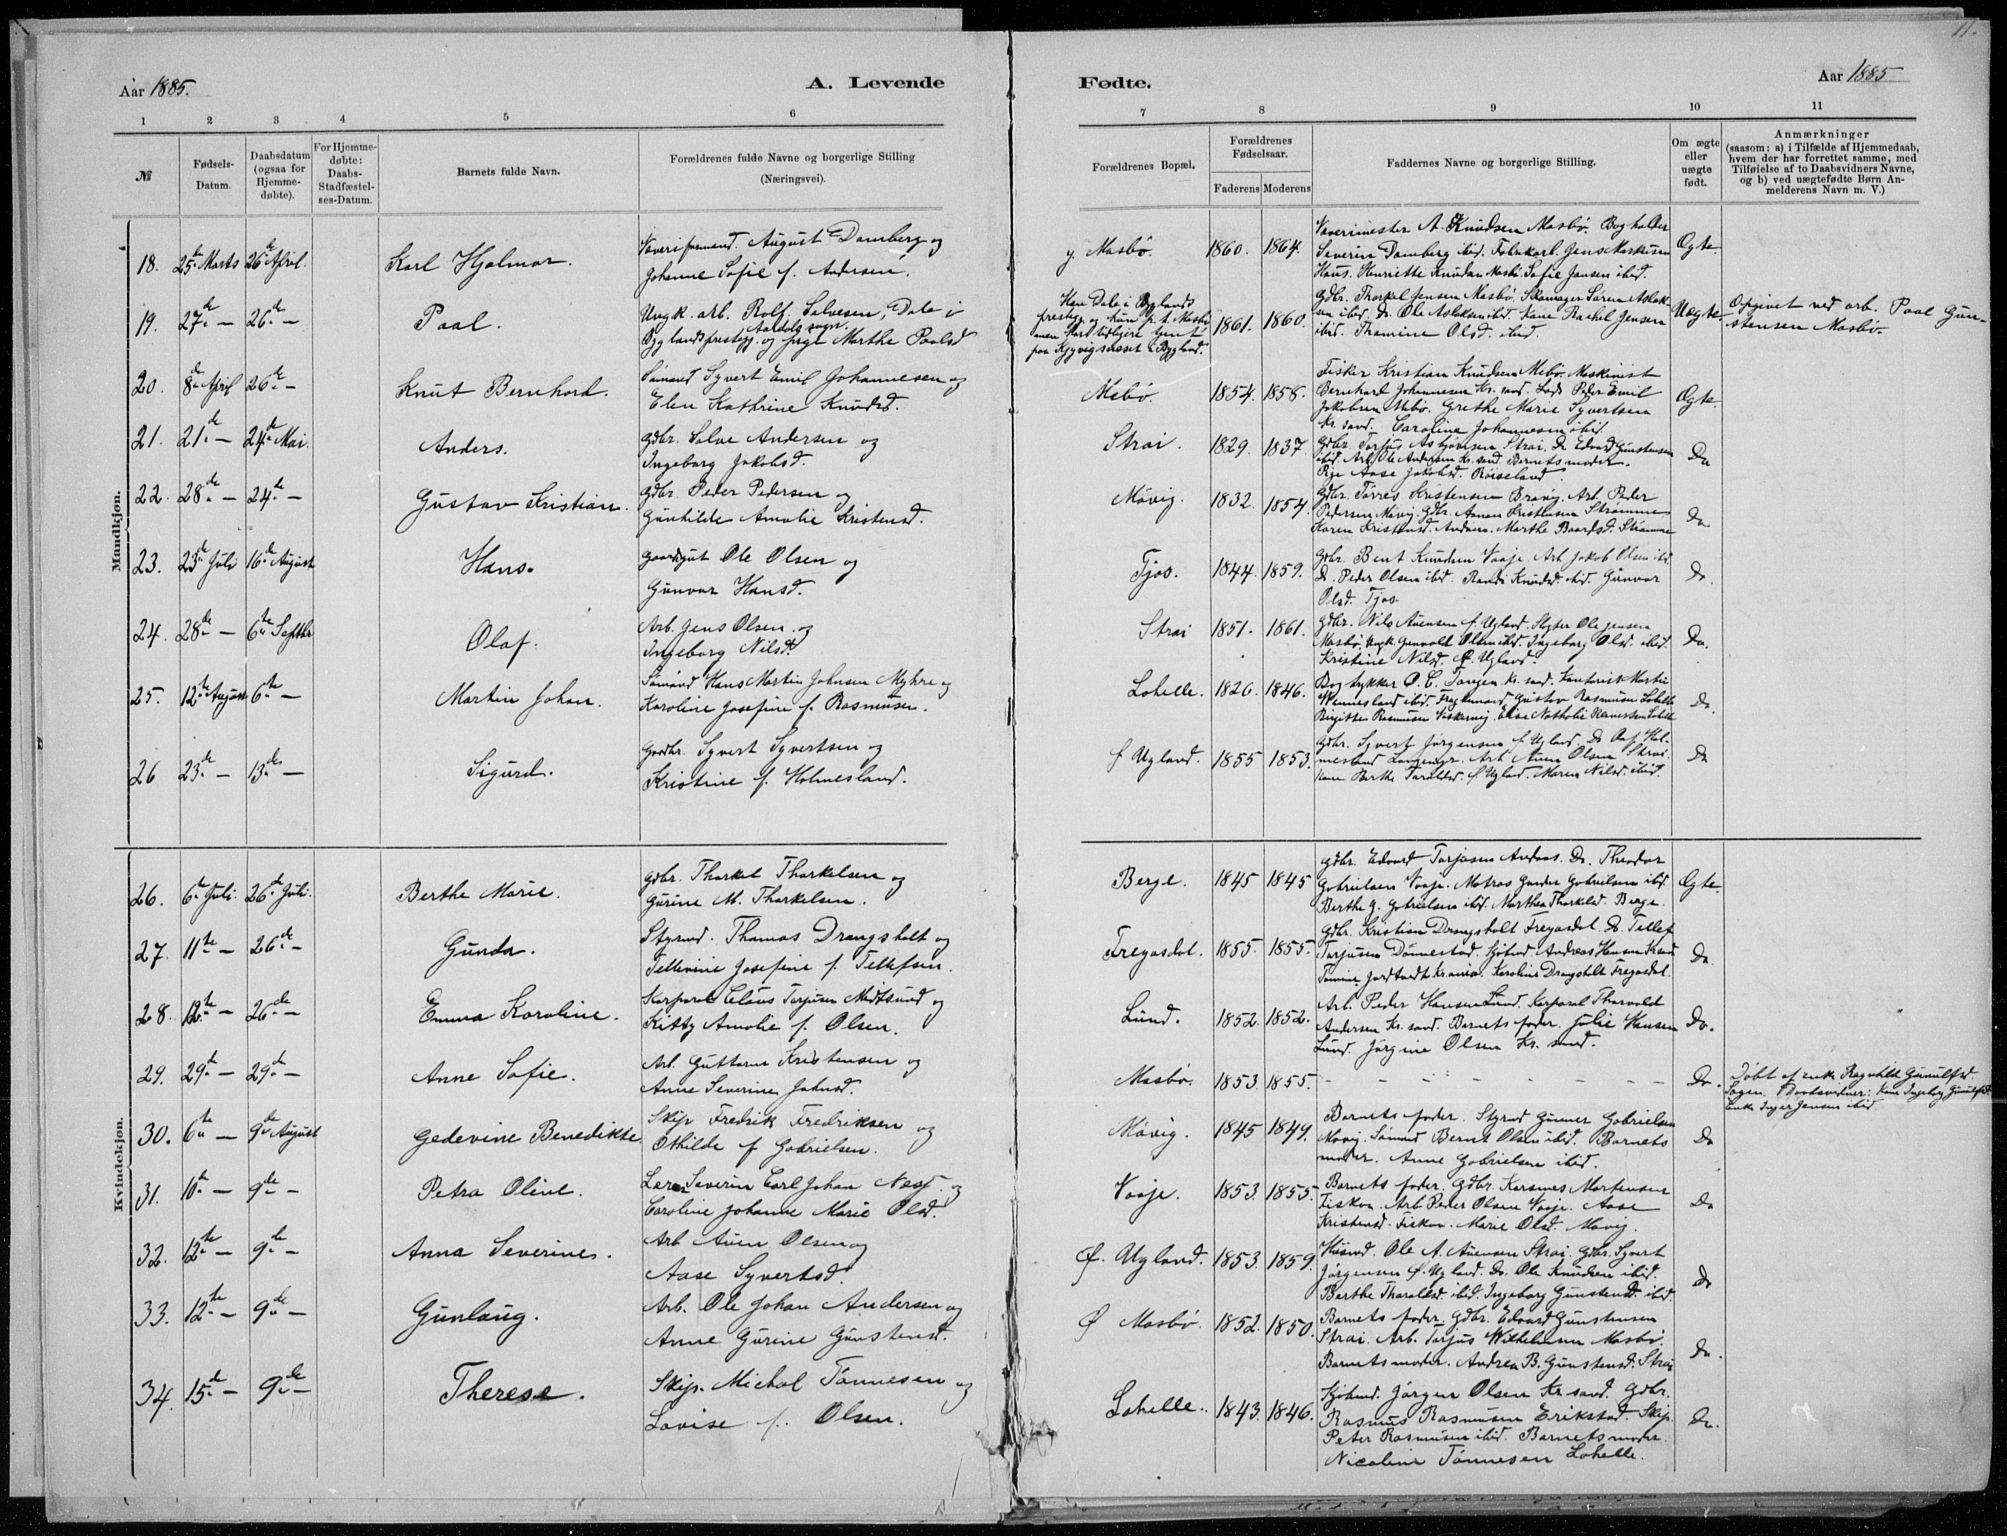 11.
Aar 1885.
A. Levende
Fødte.
Aar 1885
1 2 3 4 5 6 7 8 9 10 11
№
Fødsels-
Datum.
Daabsdatum
(ogsaa for
Hjemme-
døbte).
For Hjemme-
døbte:
Daabs-
Stadfæstel-
ses-Datum.
Barnets fulde Navn.
Forældrenes fulde Navne og borgerlige Stilling
(Næringsvei).
Forældrenes Bopæl.
Forældrenes
Fødselsaar.
Faderens Moderens
Faddernes Navne og borgerlige Stilling.
Om ægte
eller
uægte
født.
Anmærkninger
(saasom: a) i Tilfælde af Hjemmedaab,
hvem der har forrettet samme, med
Tilføielse af to Daabsvidners Navne,
og b) ved uægtefødte Børn An-
melderens Navn m. V.)
Mandkjøn.
18. 25de Marts 26de April. Karl Hjalmar.
August Damberg og
Johanne Sofie f. Andersen.
y. Mosbø. 1860. 1864.
A. Knudsen Mosbø. Bogholder
Severin Damberg ibid. Jens Markusen
Henriette Knudsen Mosbø Sofie Jansen ibid.
Ægte.
19. 27de — 26de — Paal.
Ungk. arb. Rolf Salvesen, Dale i
Byglands prestegj. og Inge Marthe Paalsd
1861. 1860.
Gdbr. Thorkel Jensen Mosbø. Skomager Søren Aslak-
sen ibid. Do Ole Aslaksen ibid. Kone Rachel Jensen
ibid. Thomine Olsd. ibid.
Uægte.
Opgivet ved arb. Paal Gun-
stensen Mosbø.
20. 8de April 26de — Knut Bernhard.
Sømand Syvert Emil Johannesen og
Elen Kathrine Knudsd.
Mebø. 1854. 1858.
Fisker Kristian Knudsen Mebø. Maskinist
Bernhard Johannesen Kr. sand. Lods Peder Emil
Jakobsen Mebø. Grethe Marie Syvertsen
Kr. sand. Caroline Johannesen ibid.
Ægte.
21. 21de — 24de Mai. Anders.
Gdbr. Salve Andersen og
Ingeborg Jakobsd.
Strai. 1829. 1837.
Gdbr. Tarjus Asbjørnsen Strai. Do Edvard Gunstensen
ibid. Arb. Ole Andersen Kr. sand. Barnets moder.
Pige Aase Jakobsd. Røiseland.
Do
22. 28de — 24de — Gustav Kristian.
Gdbr. Peder Pedersen og
Gunhilde Amalie Kristensd.
Møvig. 1832. 1854
Gdbr. Tørres Kristensen Bravig. Arb. Peder
Pedersen Møvig. Gdbr. Aanon Kristensen Strømme
Karen Kristensd. Andaas. Marthe Baardsd. Strømme
Do
23. 23de Juli 16de August Hans.
Gaardgut Ole Olsen og
Gunvor Hansd.
Tjos. 1844. 1859.
Gdbr. Bent Knudsen Vaaje. Arb. Jakob Olsen ibid.
Do. Peder Olsen ibid. Randi Knudsd. ibid. Gunvor
Olsd. Tjos.
Do.
24. 28de — 6te Septbr Olaf.
Arb. Jens Olsen og
Ingeborg Nilsd.
Strai 1851. 1861.
Gdbr. Nils Auensen f. Ugland. Slagter Ole Jensen
Mosbø. Ungk Gunvald Olsen ibid. Ingeborg Olsd. ibid.
Kristine Nilsd. Ø. Ugland.
Do.
25. 12te August 6te — Martin Johan.
Sømand Hans Martin Johnsen Myhre og
Karoline Josefine f. Rasmussen.
Lohelle. 1826. 1846.
Bogtykker O. C. Tangen Kr. sand. Kontorist Martin
Wennesland ibid. Gustav Rasmussen Lohelle
Birgitte Rasmussen Elise Nathalie Lohelle
Do.
26 23de — 13de — Sigurd.
Gaardbr. Syvert Syvertsen og
Kristine f. Holmesland.
Ø Ugland. 1855 1853.
Gdbr. Syvert Jørgensen f. Ugland. Do Hol-
mesland Langemyr. Arb Auen Olsen Strai.
Kone Berthe Taraldsd. f. Ugland. Maren Nilsd. ibid.
Do
Kvindekjøn.
26. 6te Juli. 26de Juli. Berthe Marie.
Gdbr. Thorkel Thorkelsen og
Gurine M. Thorkelsen.
Berge. 1845 1845
Gdbr. Edvard Tarjusen Andaas. Do. Theodor
Gabrielsen Vaaje. Matros Gunder Gabrielsen ibid.
Berthe G. Gabrielsen ibid. Marthea Thorkelsd. Berge.
Ægte.
27. 11te — 26de — Gunda.
Styrmd. Thomas Drangsholt og
Tellevine Josefine f. Tellefsen.
Fregasdal. 1855. 1855.
Gdbr. Kristian Drangsholt Fregasdal. Do. Tellef
Tarjusen Dønnestad. Sjømd. Andreas Hansen Kr.sand
Kr.ania. Karoline Drangsholt Fregasdal.
Do.
28. 12te — 26de — Emma Karoline.
Korporal Claus Tarjusen Midtsund og
Kitty Amalie f. Olsen.
Lund. 1852. 1852.
Arb. Peder Hansen Lund. Korporal Thorvald
Andersen Kr. sand. Barnets fader. Julie Hansen
Lund. Jørgine Olsen Kr. sand.
Do.
29. 29de — 29de — Anne Sofie.
Arb. Guttorm Kristensen og
Anne Severine Johnsd.
Mosbø. 1853. 1855. — — — — — — — Do.
Døbt af enke Ragnhilde Gunulfsd
Daabsvidner: Kone Ingeborg Gunulfsd.
Enke Inger Jensen ibid.
30. 6te — 9de August Gedevine Benedikte
Skip Fredrik Fredriksen og
Othilde f Gabrielsen.
Møvig. 1845 1849.
Barnets fader. Styrmd Gunner Gabrielsen
Møvig. Sømand Bernt Olsen ibid. Barnets
moder. Anne Gabrielsen ibid.
Do
31. 10de — 9de — Petra Oline.
Lærer Severin Carl Johan Næss. og
Caroline Johanne Marie Olsd.
Vaaje. 1853. 1855.
Barnets fader. Gdbr. Karsmes Mortensen
Fiskon. Arb. Peder Olsen Vaaje. Aase
Kristensd. Fiskon. Marie Olsd. Møvig.
Do
32. 12te — 9de — Anna Severine.
Arb Auen Olsen og
Aase Syvertsd.
Ø. Ugland. 1853. 1859.
Husmd. Ole A. Auensen Strai. Gdbr. Syvert
Jørgensen Ø. Ugland. Do. Ole Knudsen ibid.
Berthe Tharaldsd. ibid. Ingeborg Gunstensd. ibid.
Do
33. 12te — 9de — Gunlaug.
Arb. Ole Johan Andersen og
Anne Gurine Gunstensd.
Ø Mosbø. 1852. 1850.
Barnets fader. Gdbr. Edvard Gunstensen
Strai. Arb. Tarjus Wilhelmsen Mosbø.
Barnets moder. Andrea B. Gunstensd. Strai
Do.
34. 15de — 9de — Therese.
Skip. Michal Tønnesen og
Lovise f. Olsen.
Lohelle. 1843. 1846.
Sjømd. Jørgen Olsen Kr. sand. Gdbr.
Rasmus Rasmussen Erikstad. Skip.
Peter Rasmussen ibid. Barnets moder.
Nicoline Tønnesen Lohelle.
Do.